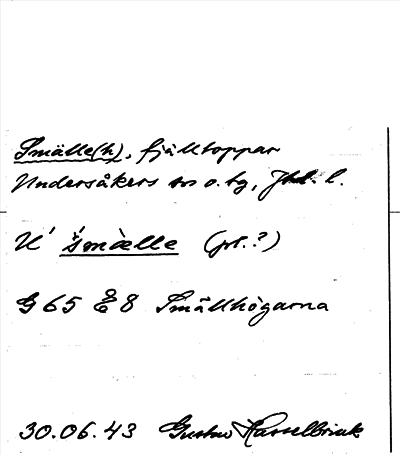 Smälle(h), fjälltoppar
Undersåkers sn o. tg, Jtl. l.
U' śmàelle (pl.?)
G 65 E 8 Smällhögarna
30.06.43 Gustav Hasselbrink